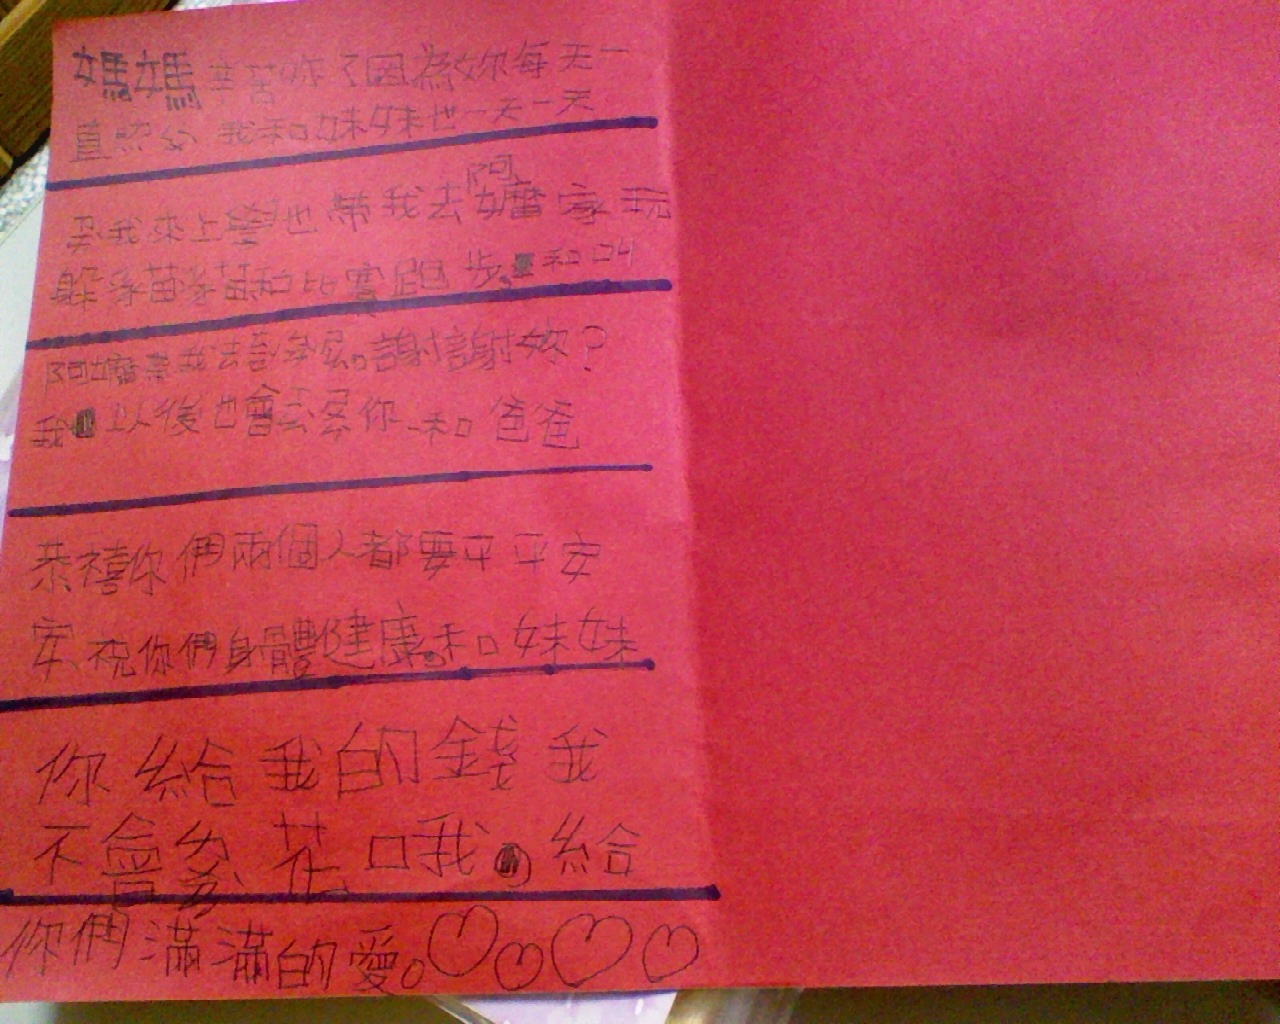 媽媽辛苦你了因為妳每天一
直照 我和妹妹也一天一天
我來上學也帶我去阿嬤家玩
躲 和比賽跑步。和叫
阿嬤帶我去 謝謝妳?
我 以後也會去 你和爸爸
恭禧你們兩個人都要平平安
安、祝你們身體健康。和妹妹
你給我的錢我
不會 花、 我。給
你們滿滿的愛。